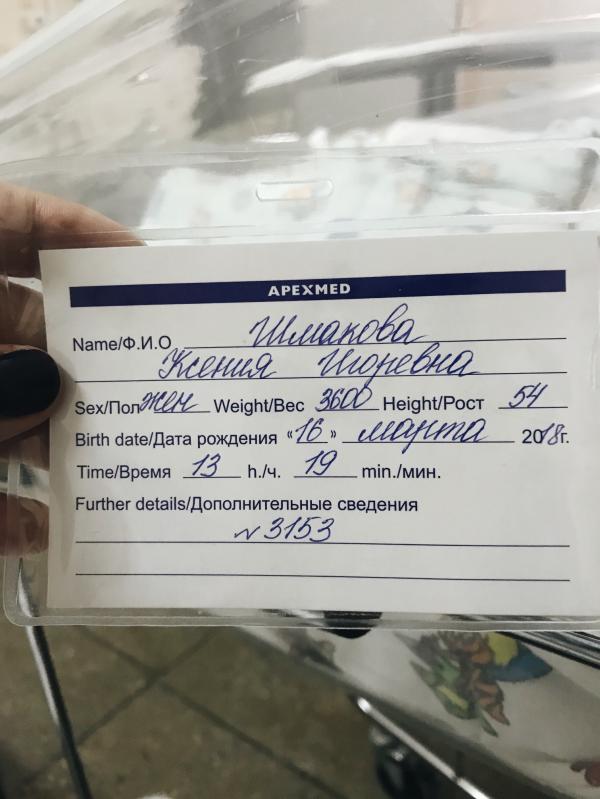 APEXMED
Name/Ф.И.О Шмакова
Ксения Игоревна
Sex/Пол жен Weight/Вес 3600 Height/Рост 54
Birth date/Дата рождения «16» марта 2018г.
Time/Время 13 h./ч. 19 min./мин.
Further details/Дополнительные сведения
№3153